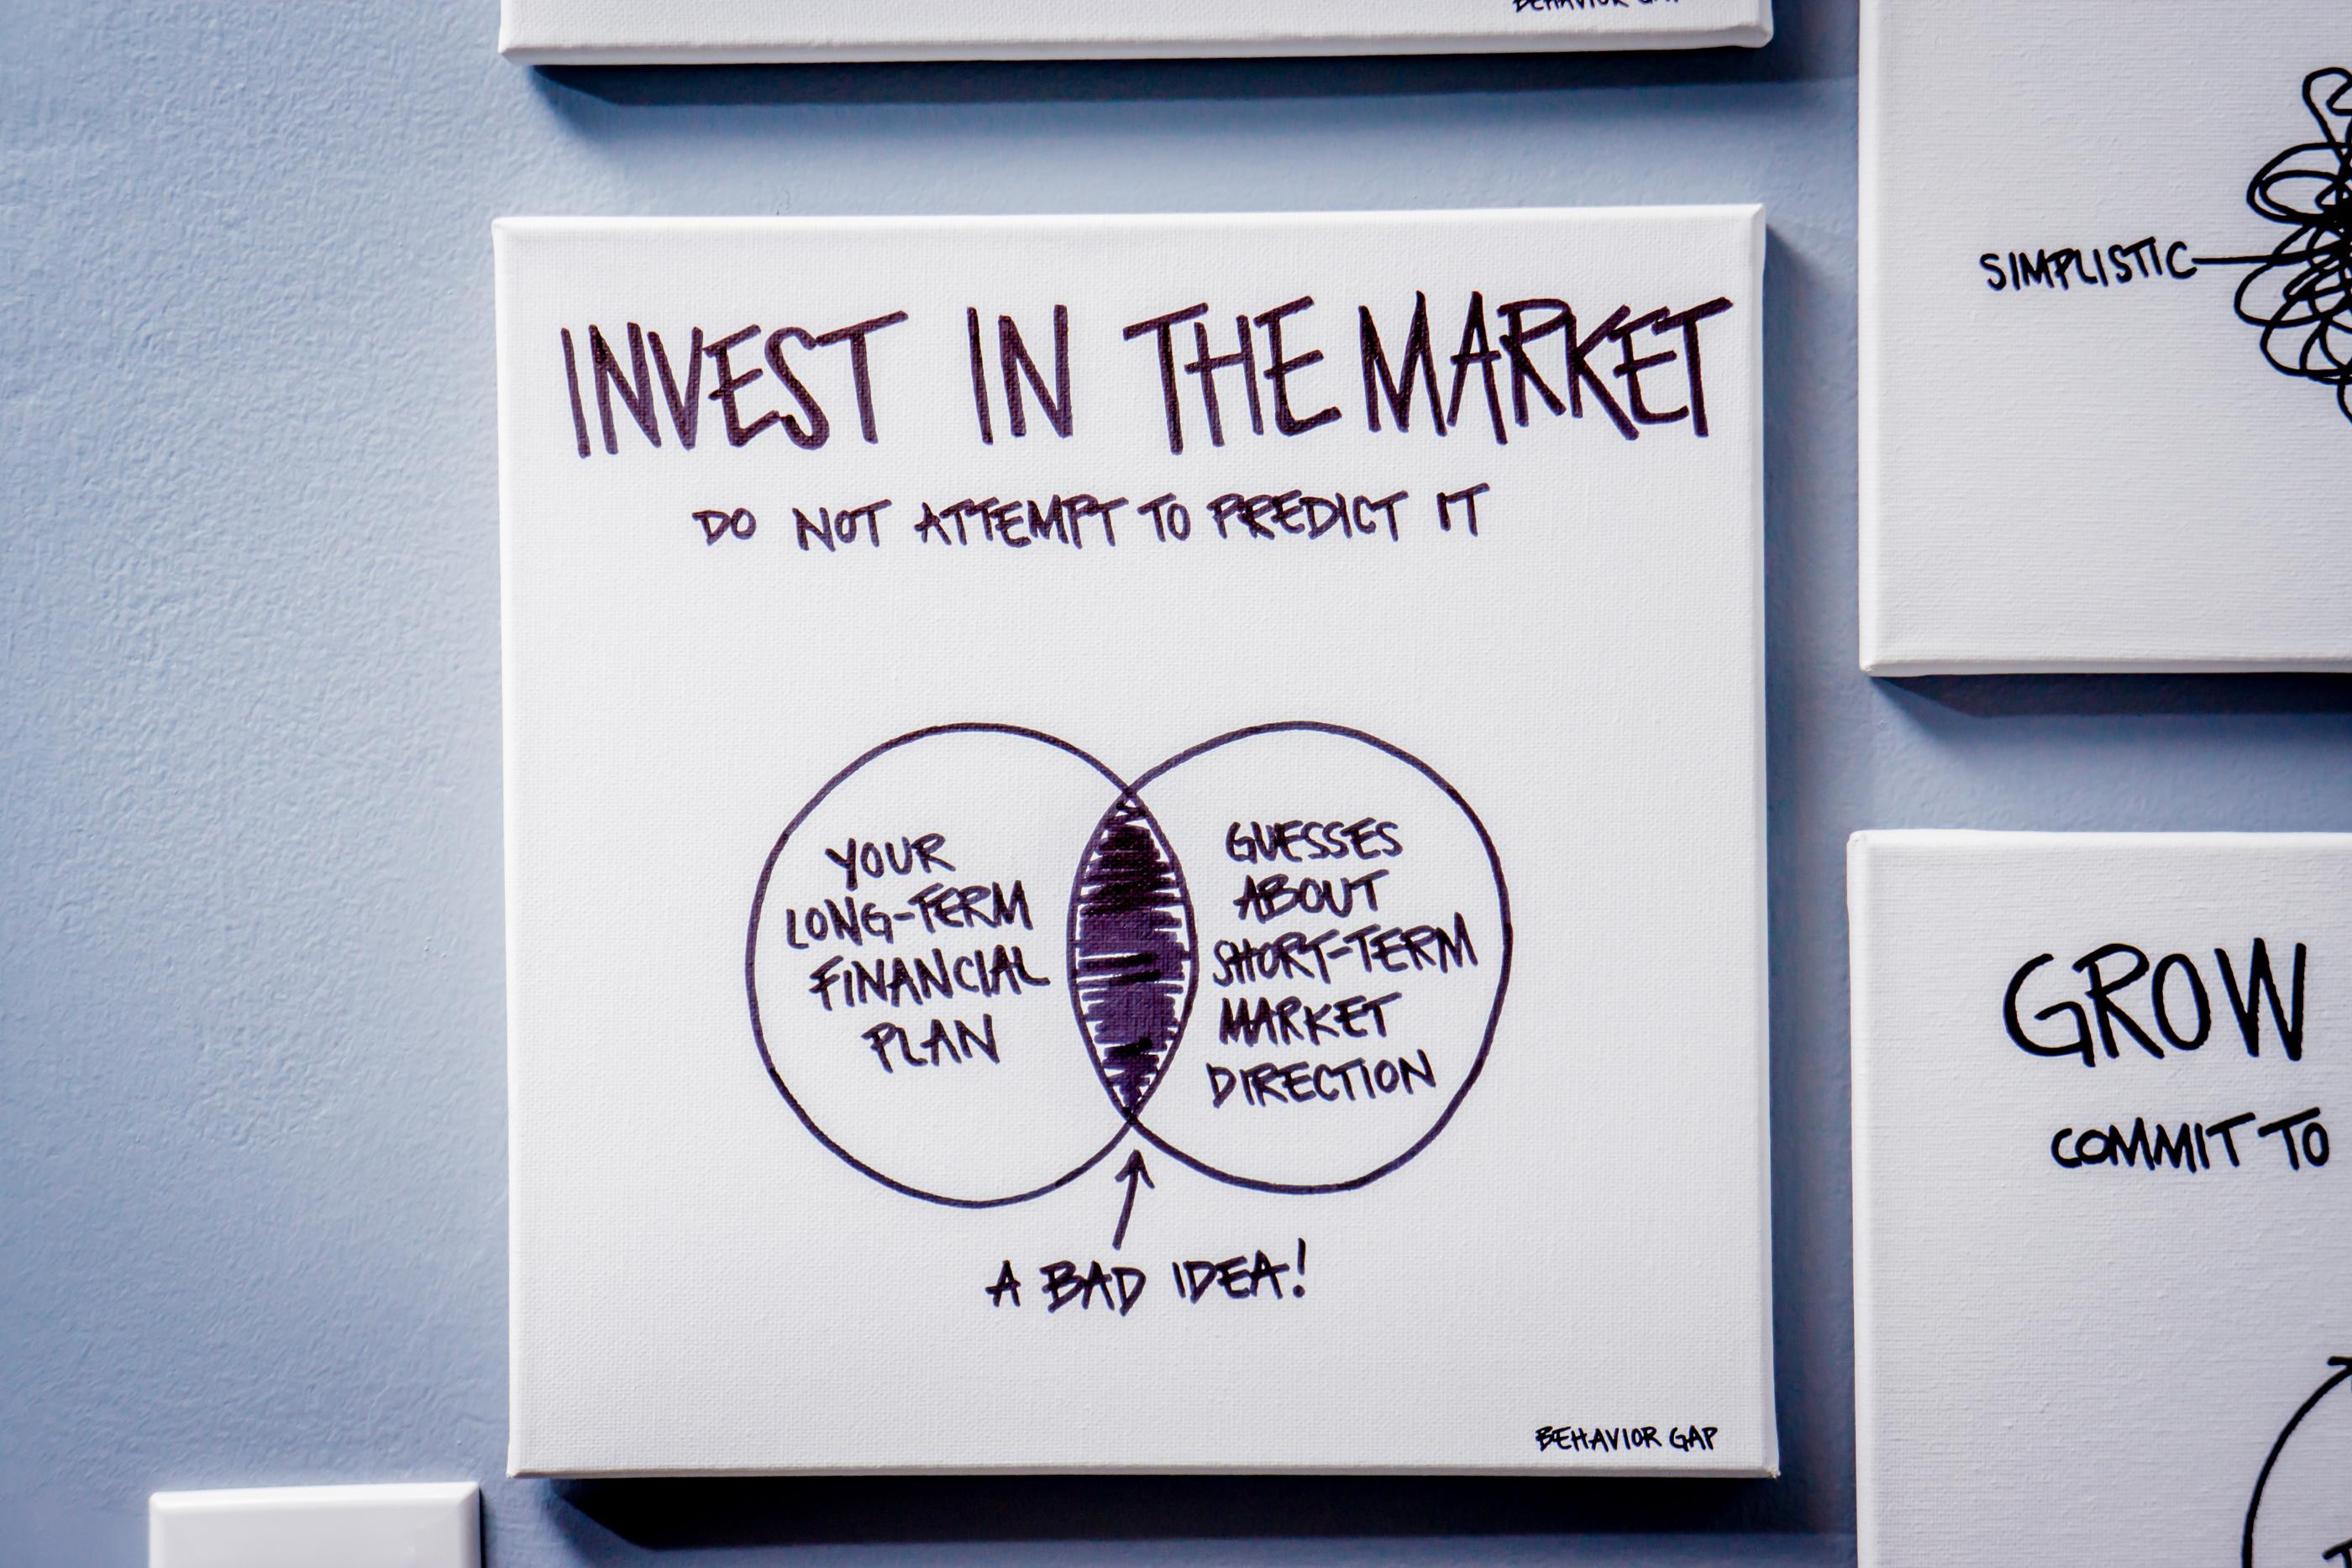 BEHAVIOR GAP
INVEST IN THE MARKET
DO NOT ATTEMPT TO PREDICT IT
YOUR
LONG-TERM
FINANCIAL
PLAN
GUESSES
ABOUT
SHORT-TERM
MARKET
DIRECTION
A BAD IDEA!
BEHAVIOR GAP
SIMPLISTIC
GROW
COMMIT TO